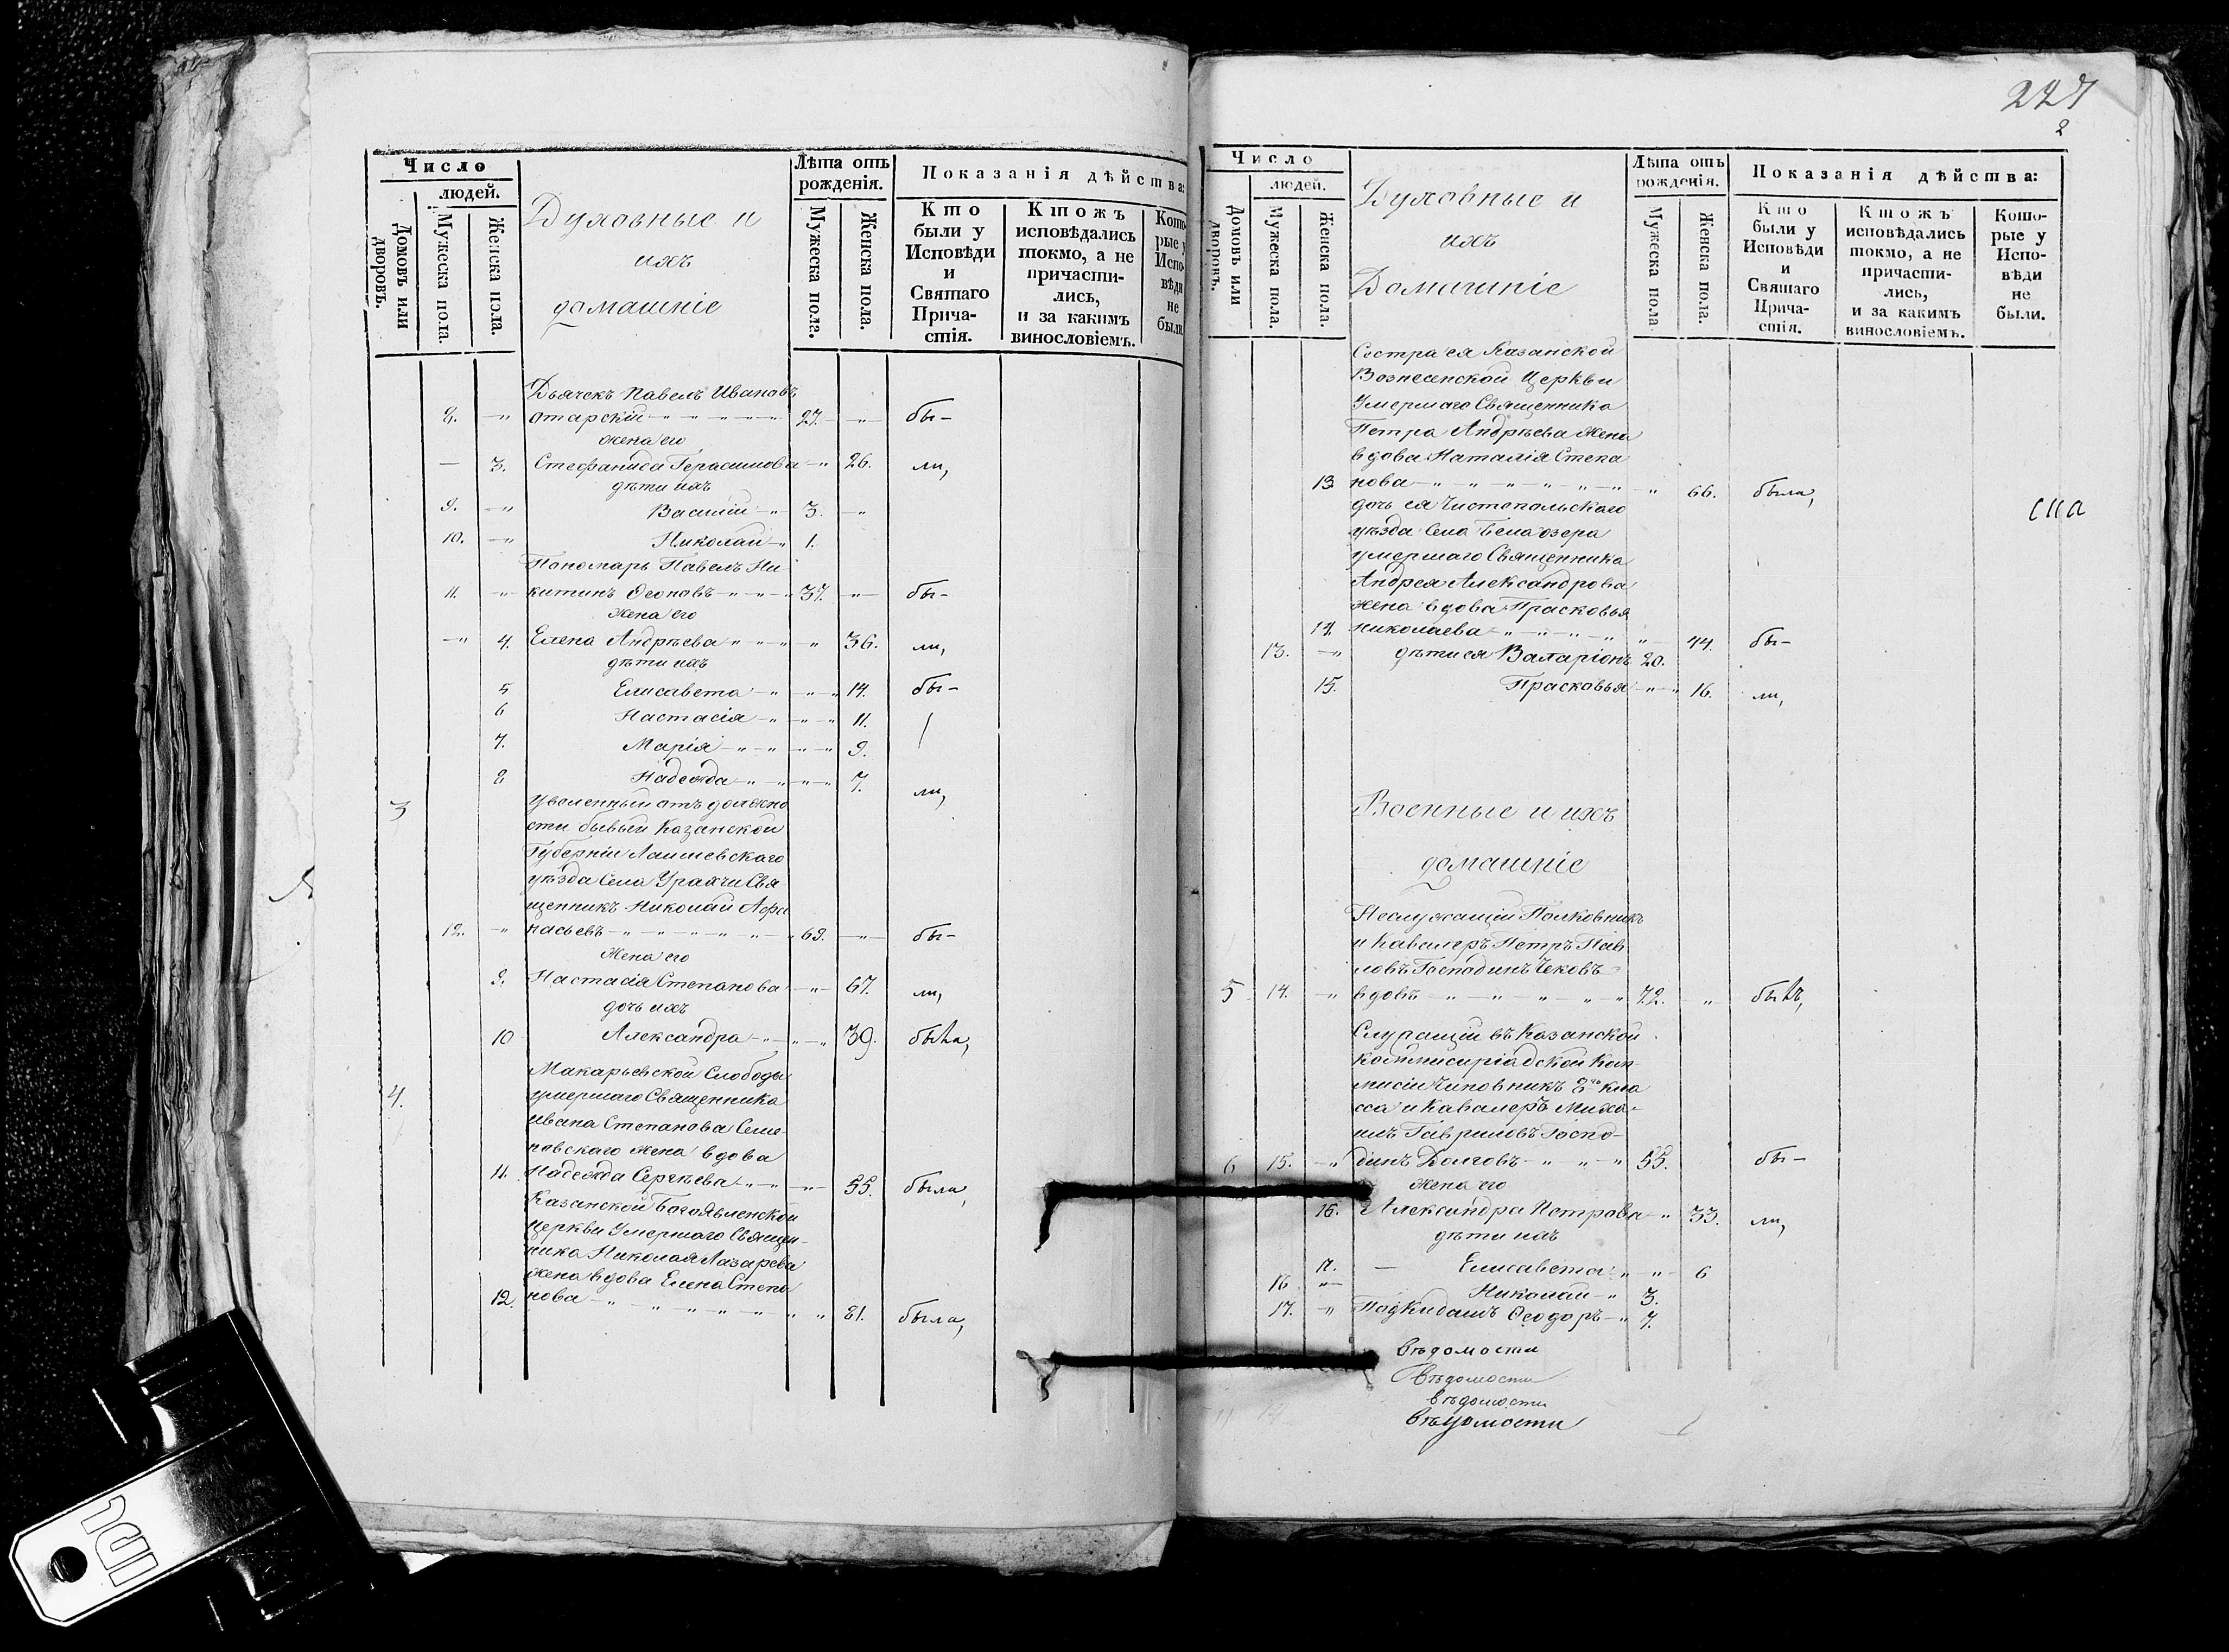 Число
людей.
Домовъ или дворовъ.
Мужеска пола.
Женска пола.
Духовные и
ихъ
домашніе
Лѣта отъ рожденія.
Мужеска пола.
Женска пола.
Показанія дѣйства:
Кто были у Исповѣди и Святаго Прича-стія.
Ктожъ исповѣдались токмо, а не причасти-лись, и за какимъ винословіемъ.
Кото-рые у Испо-вѣди не были.
Дьячекъ Павелъ Ивановъ
8. " " 27. " бы-
жена его
— 3. Стефанида Герасимова " 26. ли,
дѣти ихъ
9. " Василій " 3. "
10. " Николай " 1.
Пономарь Павелъ Ни
11. " китинъ " " 37. " бы-
жена его
" 4. Елена Андрѣева " " " 36. ли,
дѣти ихъ
5 Елисавета " " " 14. бы-
6 Настасія " " " 11.
7. Марія " " " " 9.
8 Надежда " " " " 7. ли,
3 уволенный отъ должно
сти бывый Казанской
Губерніи Лаишевскаго
уѣзда Села Урахчи Свя
щенникъ Николай Афа
12. " насьевъ " " " " " 69. " бы-
Жена его
9. Настасія Степанова " 67. ли,
дочь ихъ
10 Александра " " " 39. была,
Макарьевской Слободы
4. умершаго Священника
Ивана Степанова Семе
новскаго жена вдова
11. Надежда Сергѣева " " " 55. была,
Казанской Богоявленской
Церкви Умершаго Священ-
ника Николая Лазарева
жена вдова Елена Степа
12. нова " " " " " " " 81. была,
227
2
Число
людей.
Домовъ или дворовъ.
Мужеска пола.
Женска пола.
Духовные и
ихъ
Домашніе
Лѣта отъ рожденія.
Мужеска пола
Женска пола.
Показанія дѣйства:
Кто были у Исповѣди и Святаго Прича-стія.
Ктожъ исповѣдались токмо, а не причасти-лись, и за какимъ винословіемъ.
Кото-рые у Испо-вѣди не были.
Сестра ея Казанской
Вознесенской Церкви
Умершаго Священника
Петра Андрѣева жена
вдова Наталія Степа
13 нова " " " " " " " 66. была,
дочь ея Чистопольскаго
уѣзда Села Бела озера
умершаго Священника
Андрея Александрова
жена вдова Прасковья
14. Николаева " " " " " 44. бы-
13. " дѣти ея Валаріонъ 20.
15. Прасковья " " 16. ли,
Военные и ихъ
домашніе
Неслужащій Полковникъ
и Кавалеръ Петръ Пав
ловъ Господинъ Чековъ
5 14. " вдовъ " " " " " 72. " былъ,
Служащій въ Казанской
Коммисиріадской Ком
мисіи Чиновникъ 8го кла
сса и Кавалеръ Миха-
илъ Гавриловъ Госпо-
6 15. " динъ Долговъ " " " 55. бы-
жена его
16. Александра Петрова " 33. ли,
дѣти ихъ
17. — Елисавета " " 6
16 " Николай " 3.
17. " Подкидышъ Ѳеодоръ " 7.
вѣдомости
Вѣдомости
вѣдомости
Вѣдомости